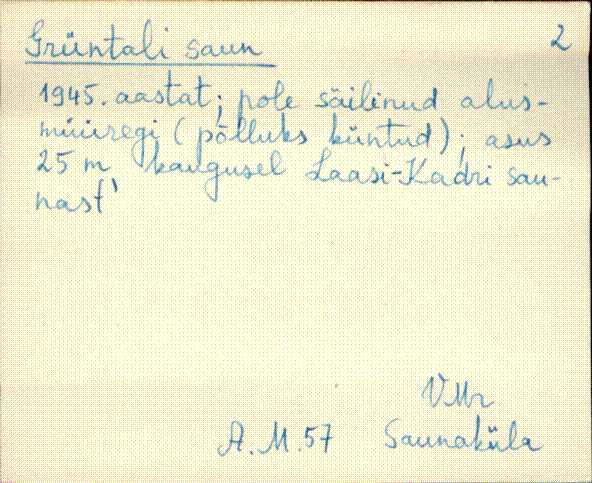 Grüntali saun 2
1945. aastat; pole säilinud alus-
müüregi (põlluks küntud); asus
25 m kaugusel Laasi-Kadri sau-
nast'
VMr
A.M.57 Saunaküla